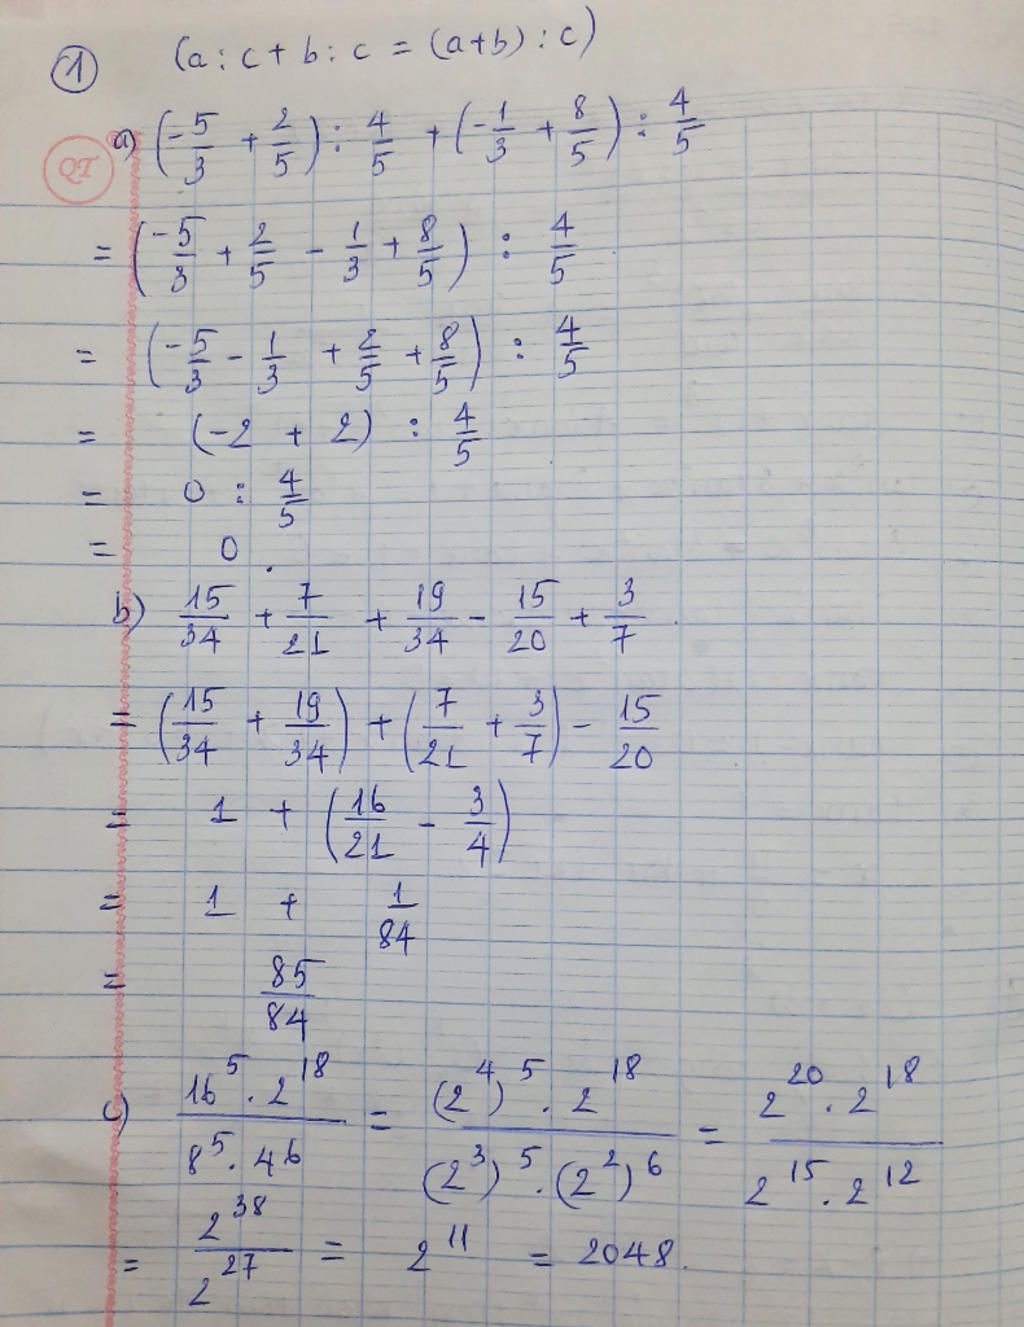 ① (a : c + b : c = (a+b) : c)
a) (-5/3 + 2/5) : 4/5 + (-1/3 + 8/5) : 4/5
= (-5/3 + 2/5 - 1/3 + 8/5) : 4/5
= (-5/3 - 1/3 + 2/5 + 8/5) : 4/5
= (-2 + 2) : 4/5
= 0 : 4/5
= 0.
b) 15/34 + 7/21 + 19/34 - 15/20 + 3/7
= (15/34 + 19/34) + (7/21 + 3/7) - 15/20
= 1 + (16/21 - 3/4)
= 1 + 1/84
= 85/84
c) (16^5 . 2^18)/(8^5 . 4^6) = ((2^4)^5 . 2^18)/((2^3)^5 . (2^2)^6) = (2^20 . 2^18)/(2^15 . 2^12)
= 2^38/2^27 = 2^11 = 2048.